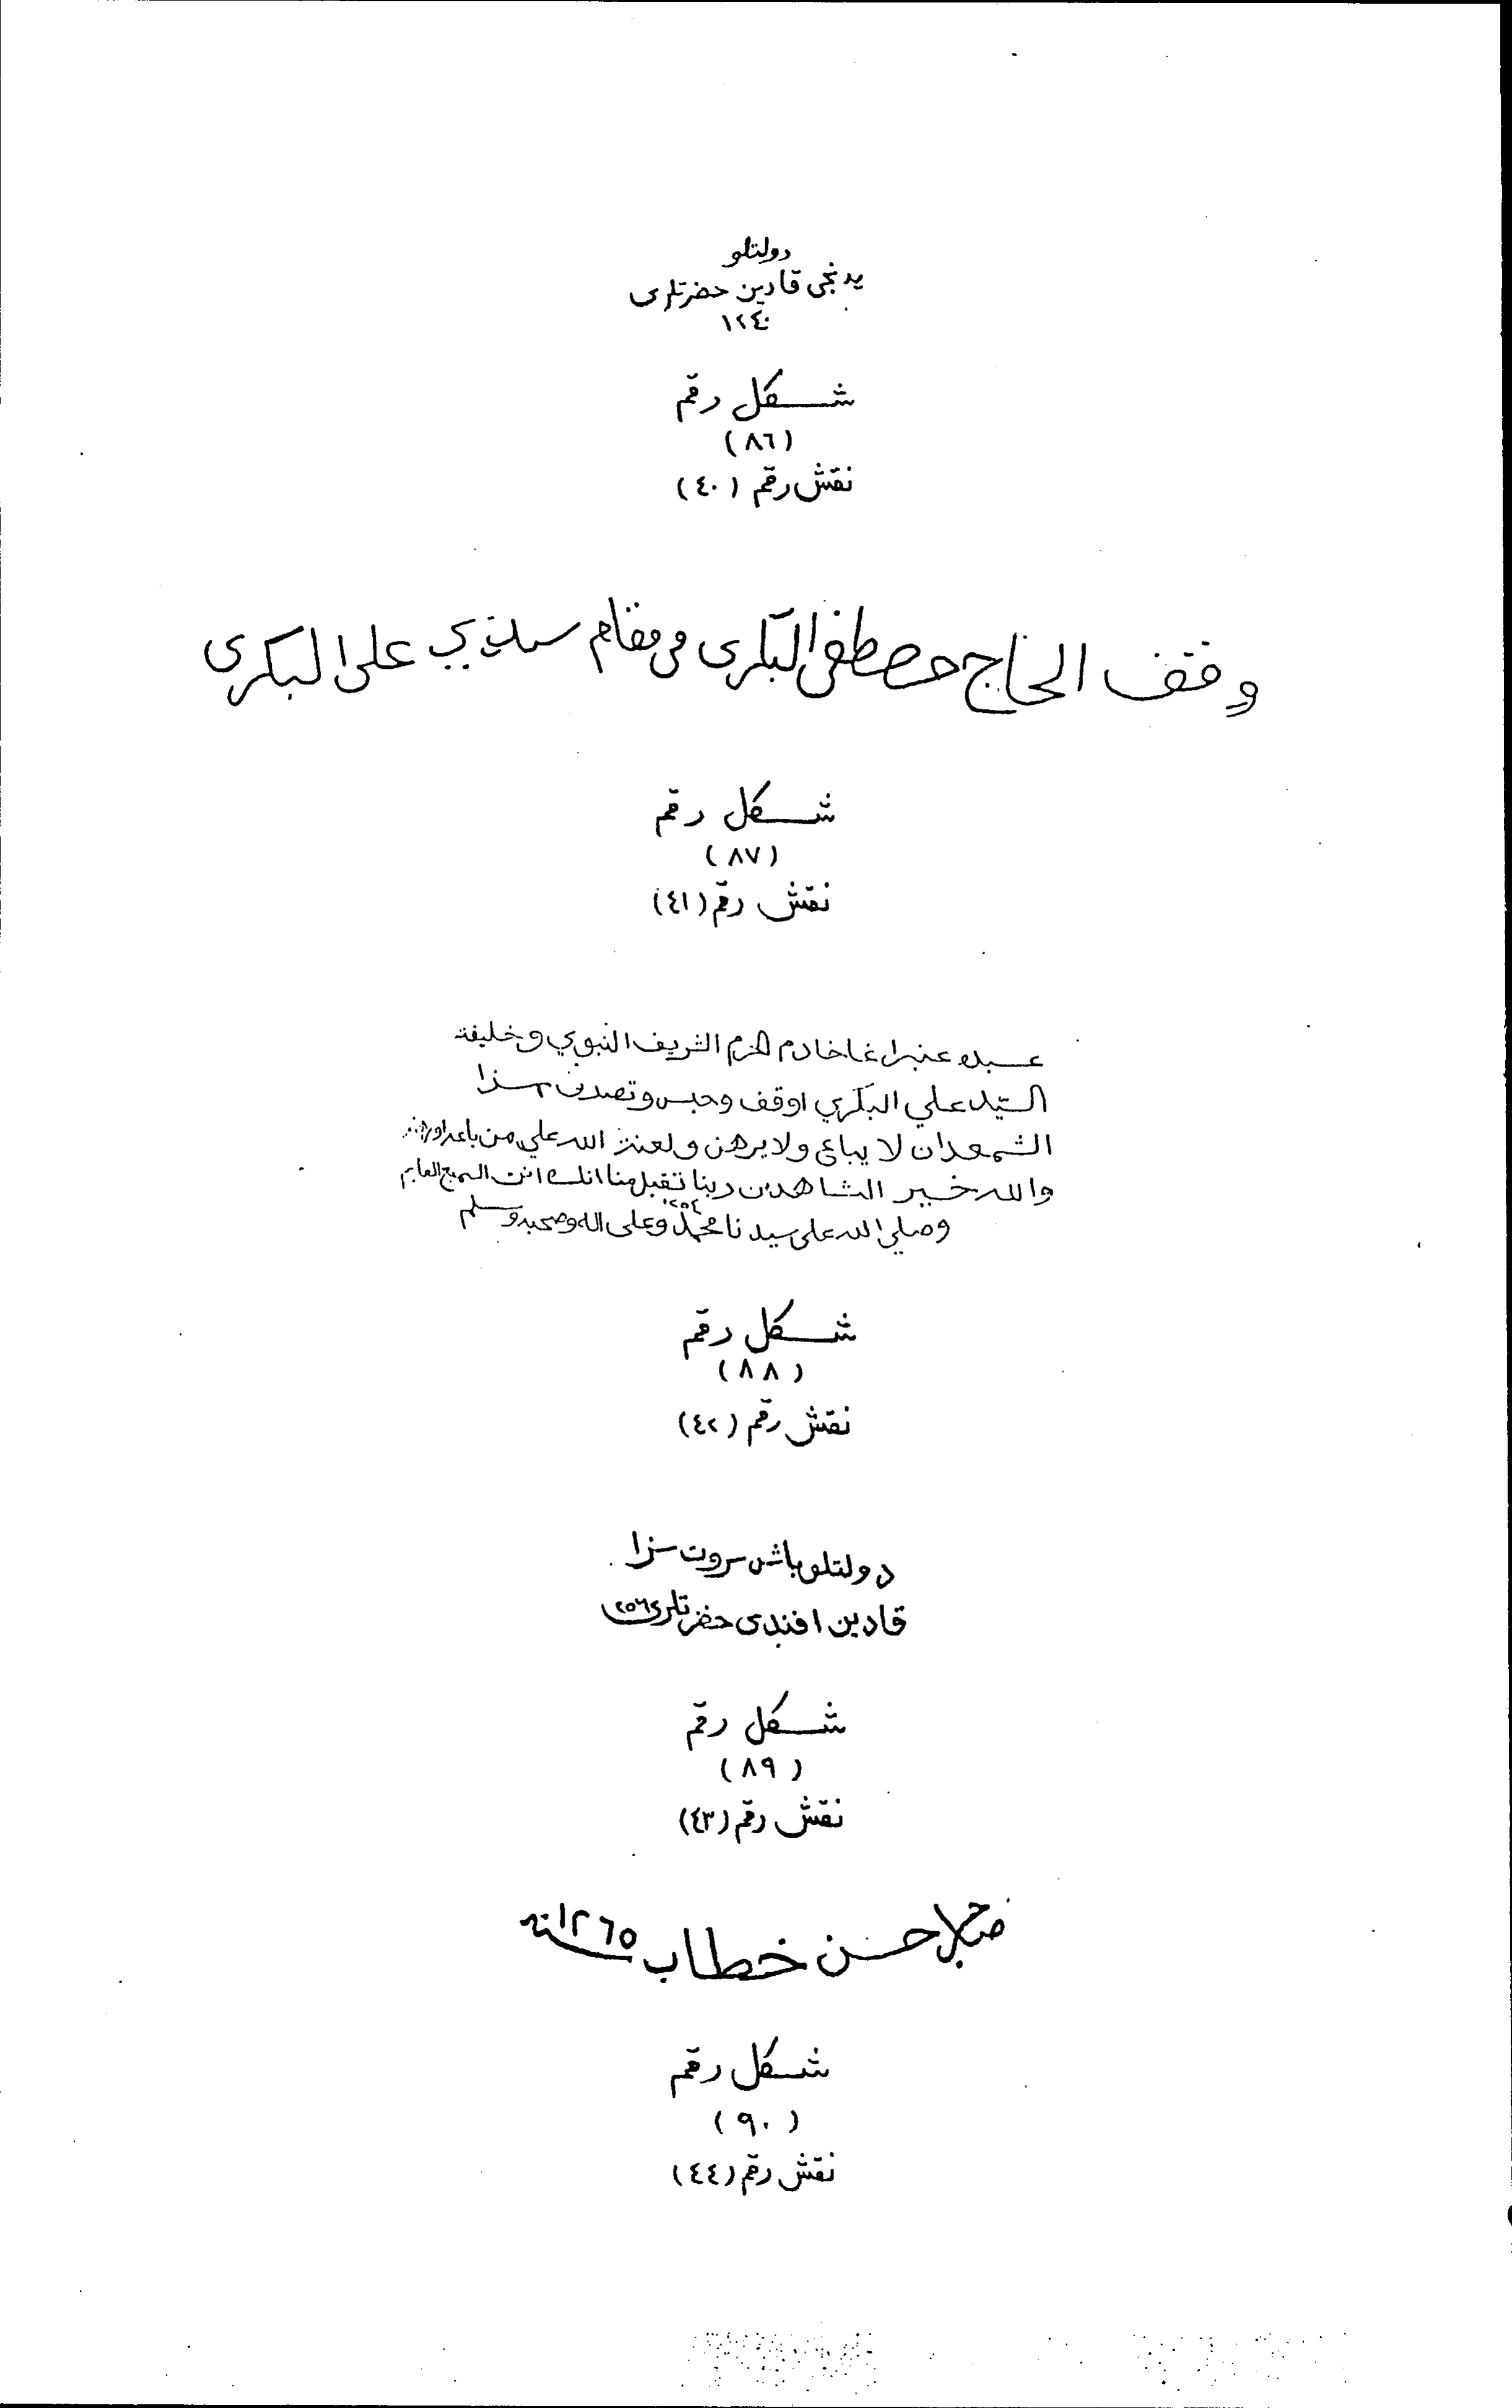 دولتلو
يدنجى قادين حضرتلرى
١٢٤٠
شكل رقم
(٨٦)
نقش رقم (٤٠)
وقف الحاج مصطفى البكرى فى مقام سيدي على البكرى
شكل رقم
(٨٧)
نقش رقم (٤١)
عبده عنبر اغا خادم الحرم الشريف النبوي وخليفة
السيد علي البكري اوقف وحبس وتصدق بهذا
الشمعدان لا يباع ولا يرهن ولعنة الله علي من باعه اورهنه
والله خير الشاهدين ربنا تقبل منا انك انت السميع العليم
١٢٥٤
وصلي الله على سيدنا محمد وعلى اله وصحبه وسلم
شكل رقم
(٨٨)
نقش رقم (٤٢)
دولتلو باش سروت سزا
قادين افندى حضرتلرى
شكل رقم
(٨٩)
نقش رقم (٤٣)
حسن خطاب سنة ١٢٦٥
شكل رقم
(٩٠)
نقش رقم (٤٤)